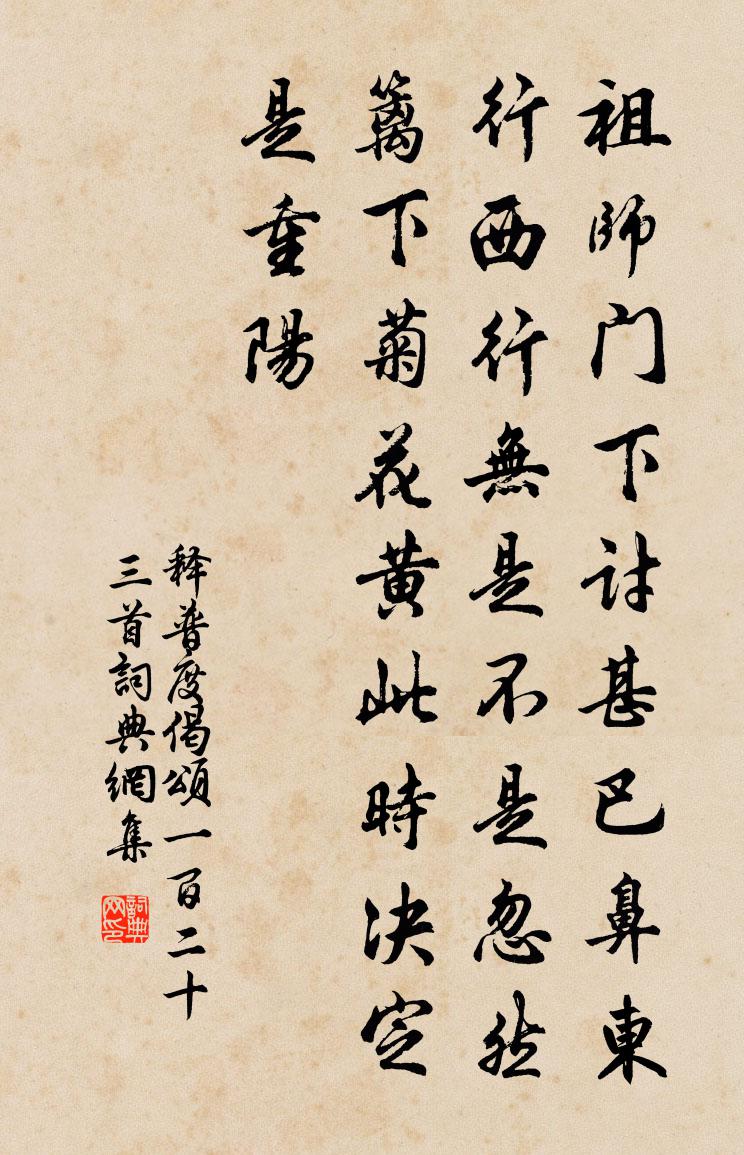 祖師门下討甚巴鼻東
行西行無是不是忽然
籬下菊花黄此時决定
是重陽
释普度偈頌一百二十
三首詞典網集
詞典网印